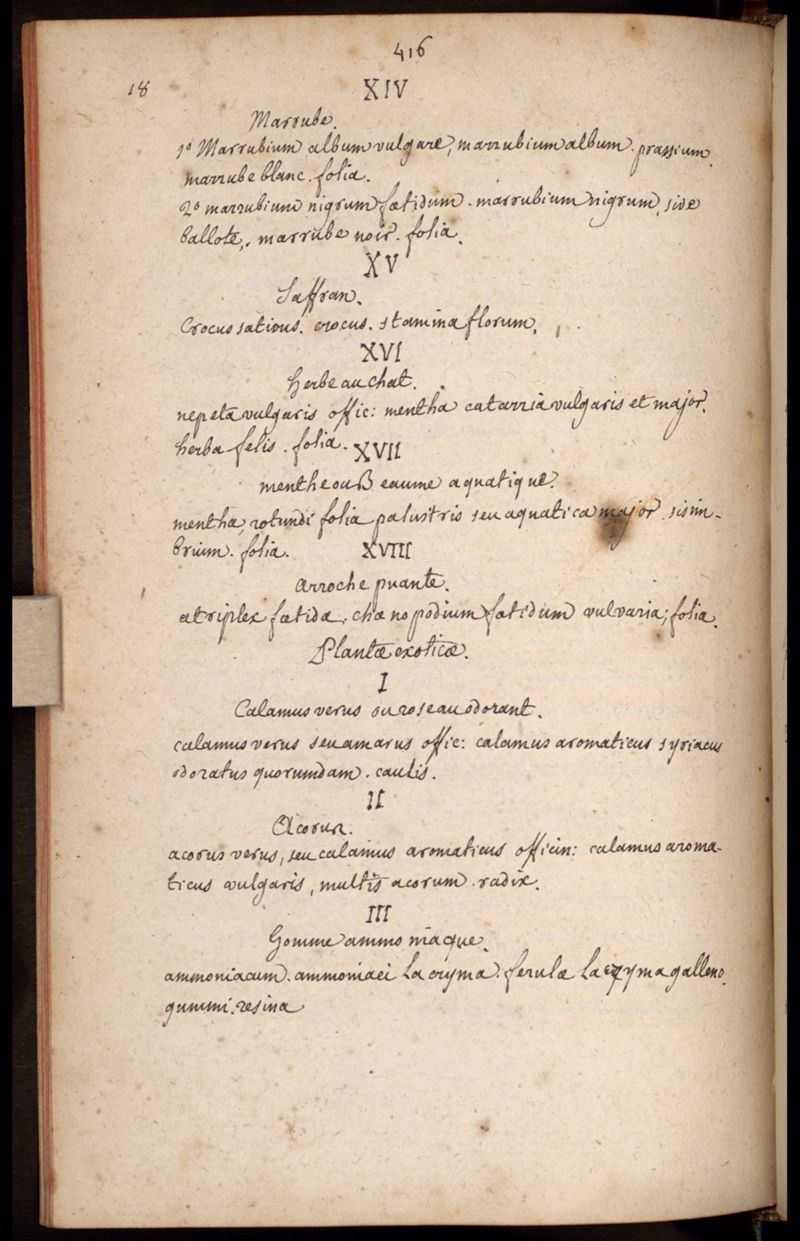 416
18
XIV
Marrube.
1º Marrubium album vulgare, marrubium album. prassium.
marrube blanc. folia.
2º marrubium nigrum fœtidum. marrubium nigrum, sive
ballote,. marrube noir. folia.
XV
Saffran.
Crocus sativus. crocus. stamina florum.
XVI
herbe au chat.
nepeta vulgaris offic: mentha catarria vulgaris et major.
herba felis. folia.
XVII
menthe ou Beaume aquatique.
mentha, rotundifolia palustris seu aquatica major. sisim-
brium. folia.
XVIII
arroche puante.
atriplex fœtida, chænopodium fœtidum vulvaria; folia.
Plantæ exoticæ.
I
Calamus verus ou roseau odorant.
calamus verus seu amarus offic: calamus aromaticus syriacus
odoratus quorumdam. caulis.
II
Acorus.
acorus verus, seu calamus aromaticus officin: calamus aroma-
ticus vulgaris, multis acorum. radix.
III
Gomme ammoniaque.
ammoniacum. ammoniaci lacryma. ferulæ lacryma galleno
gummi. resina